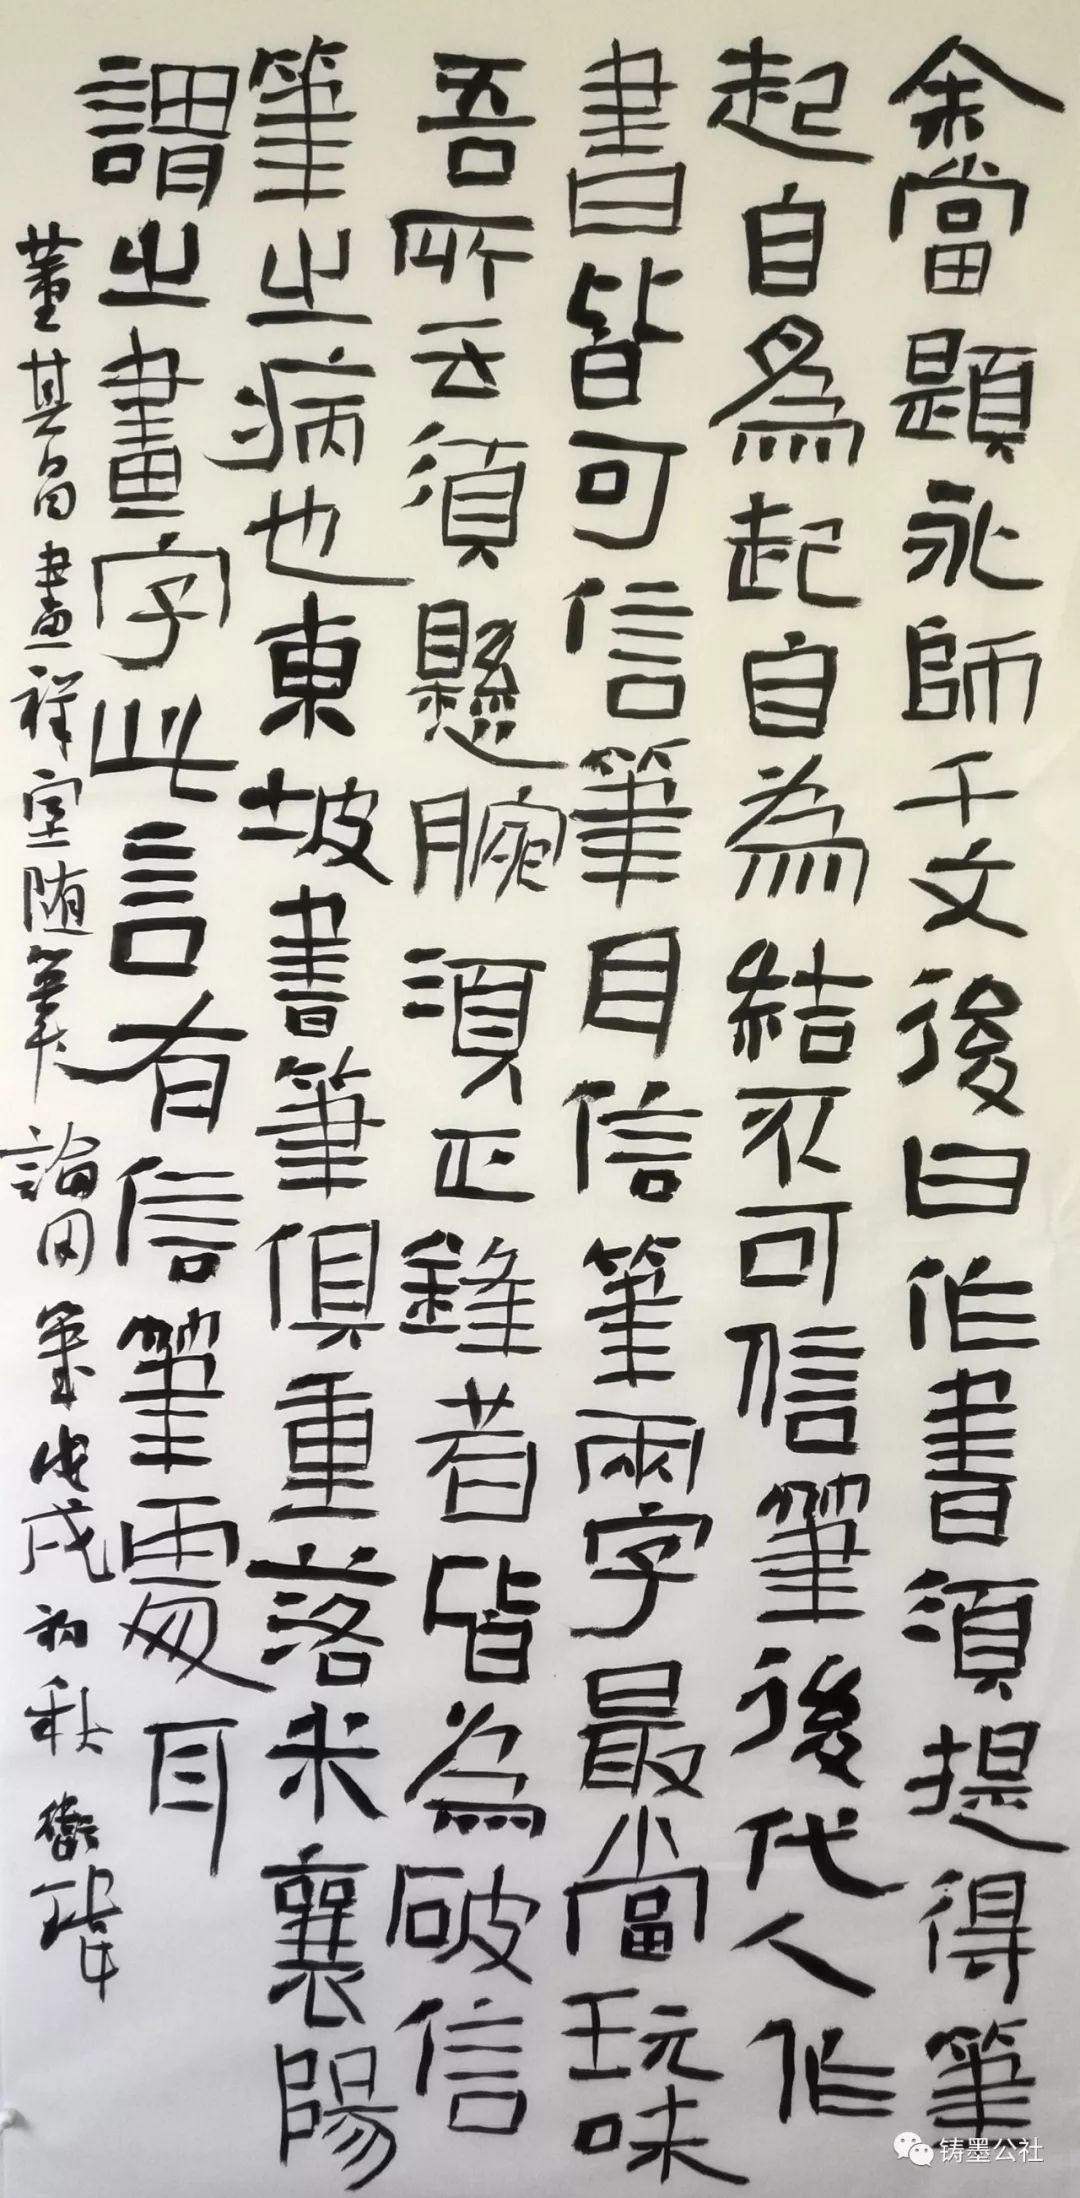 余嘗題永師千文後曰作書須提得筆
起自為起自為結不可信筆後代人作
書皆可信筆耳信筆兩字最當玩味
吾所云須懸腕須正鋒者皆為破信
筆之病也東坡書筆俱重落米襄陽
謂之畫字此言有信筆處耳
董其昌畫禪室随筆論用筆戊戌初秋
铸墨公社